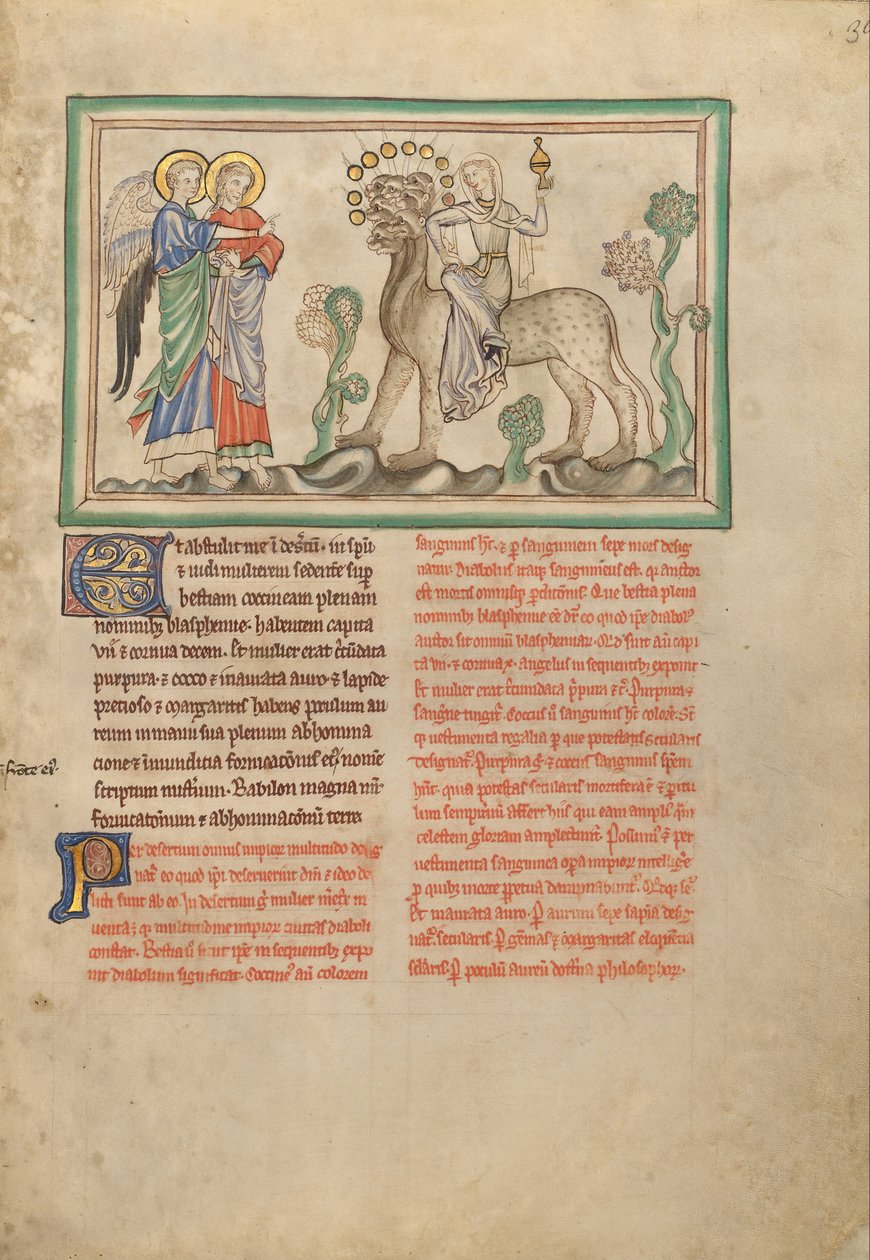 30
Et abstulit me ī desertū. in spū
⁊ uidi mulierem sedentē sup̄
bestiam coccineam plenam
nominibꝫ blasphemie. habentem capita
vii ⁊ cornua decem. Et mulier erat c̄cūdata
purpura. ⁊ cocco ⁊ inaurata auro. ⁊ lapide
precioso ⁊ margaritis habens poculum au
reum in manu sua plenum abhomina
cione ⁊ inmundicia fornicac̄onis eiꝰ. nom̄e
fronte eiꝰ.
scriptum misteriū. Babilon magna mr̄
fornicac̄onum ⁊ abhominac̄onū terre
Per desertum omnis impioꝝ multitudo desig
nat̄ eo quod ip̄i deseruerint dm̄ ⁊ ideo de
licti sunt ab eo. In desertum g̊ mulier
uenta ē qꝫ multitudine impioꝝ ciuitas diaboli
constat. Bestia u̅ sicut ip̄e in sequentibꝫ expo
nit diabolum significat. Coccineꝰ au̅ colorem
sanguinis h̄t. ⁊ ꝑ sanguinem sepe mors desig
natur. Diabolus itaqꝫ sanguineus est. qꝛ auctor
est mortis omnisqꝫ ꝑdicionis. Que bestia plena
nominibꝫ blasphemie ēe dr̄ eo quod ip̄e diabolꝰ
auctor sit omniū blasphemiaꝝ. Qd̄ sunt au̅ capi
ta vii. ⁊ cornua x. angelus in sequentibꝫ exponit
Et mulier erat c̄cūdata p̄pura ⁊ c̄. Purpura
sanḡne tingit̄. Coccus u̅ sanguinis h̄t colorē. Sūt
qꝫ uestimenta regalia ꝑ que potestatis secularis
designat̄. Purpura g̊ ⁊ coccus sanguinis spem̄
hn̄t. quia potestas secularis mortifera ē ⁊ ꝑicu
lum sempit̄num affert hiis qui eam ampliꝰ q̄m
celestem gloriam amplectunt̄. Possumꝰ ⁊ per
uestimenta sanguinea oꝑa impioꝝ intelliḡe
ꝑ quibꝫ morte ꝑpetua dempnabunt̄.
Et inaurata auro. P̱ aurum sepe sapīa desig
nat̄ secularis. P̱ gēmas ⁊ margaritas eloquēcia
sc̄laris. P̱ poculū aureū doctrīa philosophoꝝ.